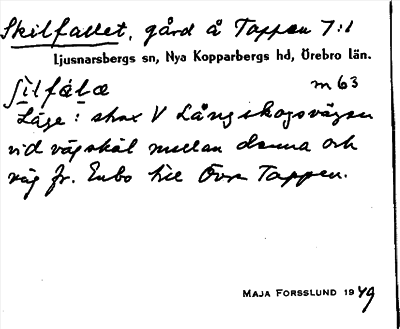 Skilfallet, gård å Tappen 7:1
Ljusnarsbergs sn, Nya Kopparbergs hd, Örebro län.
ʃilfálæ m 63
Läge: strax V Långskogsvägen
vid vägskäl mellan denna och
väg fr. Enbo till Övre Tappen.
MAJA FORSSLUND 1949